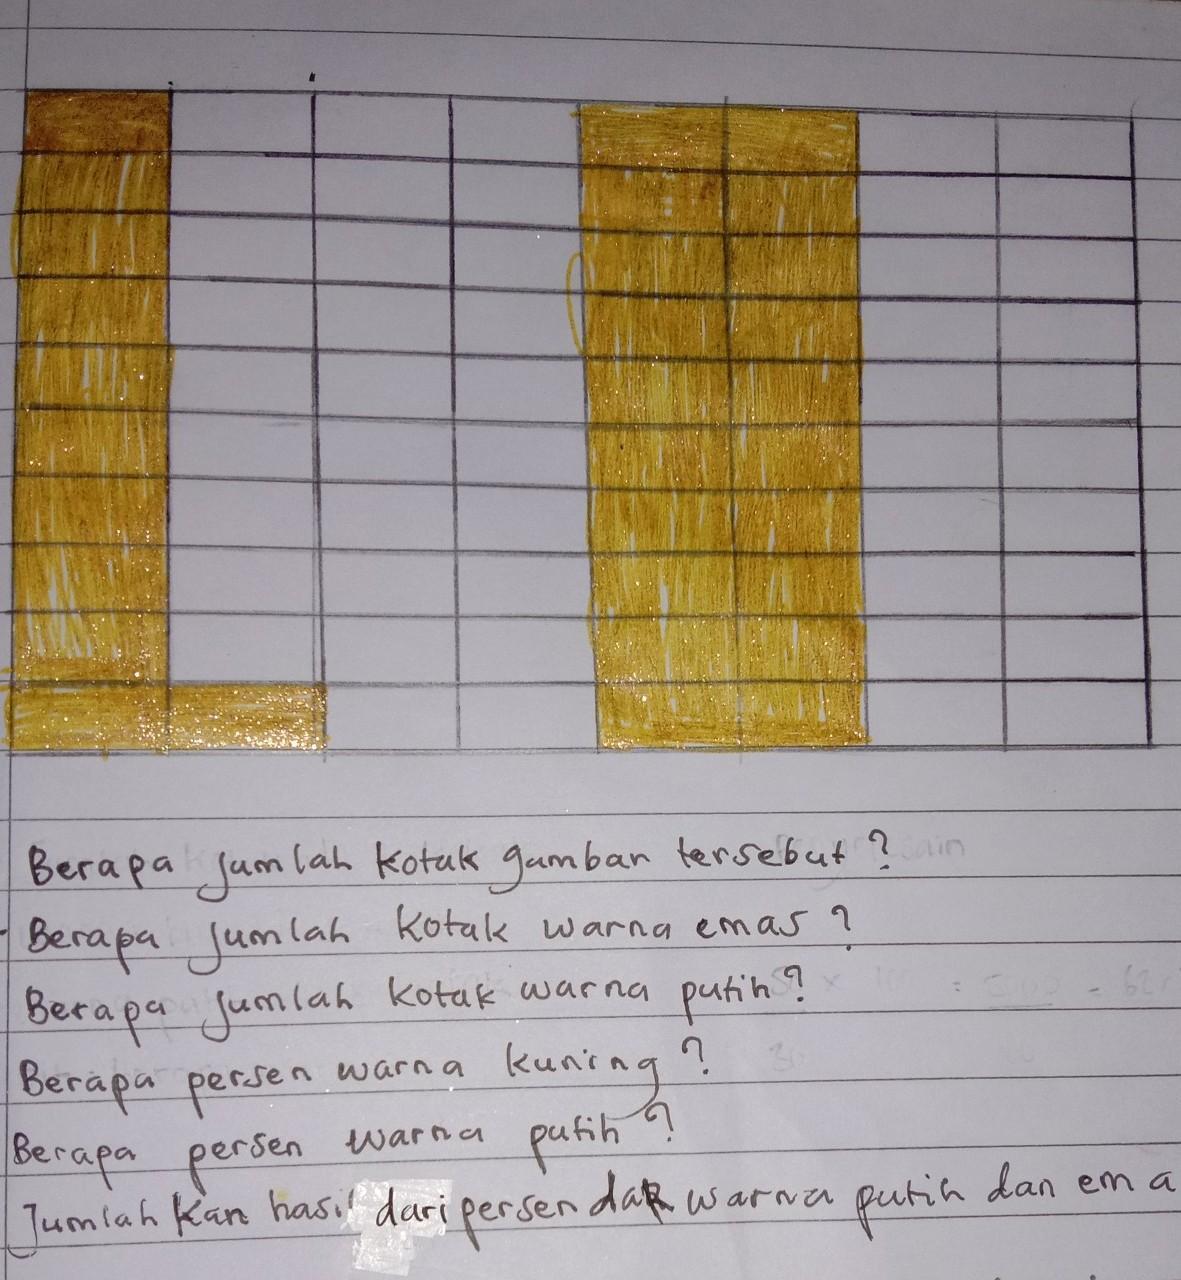 Berapa jumlah kotak gambar tersebut?
Berapa jumlah kotak warna emas?
Berapa jumlah kotak warna putih?
Berapa persen warna kuning?
Berapa persen warna putih?
Jumlahkan hasil dari persen dar warna putih dan ema